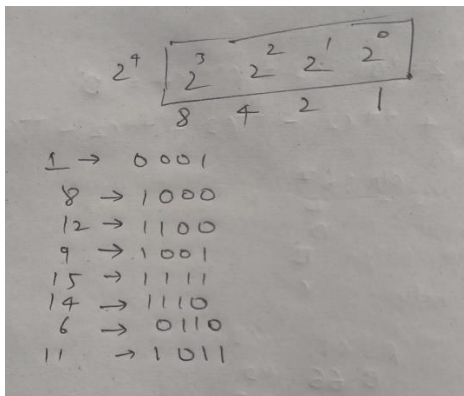 2⁴ 2³ 2² 2¹ 2⁰
8 4 2 1
1 → 0001
8 → 1000
12 → 1100
9 → 1001
15 → 1111
14 → 1110
6 → 0110
11 → 1011